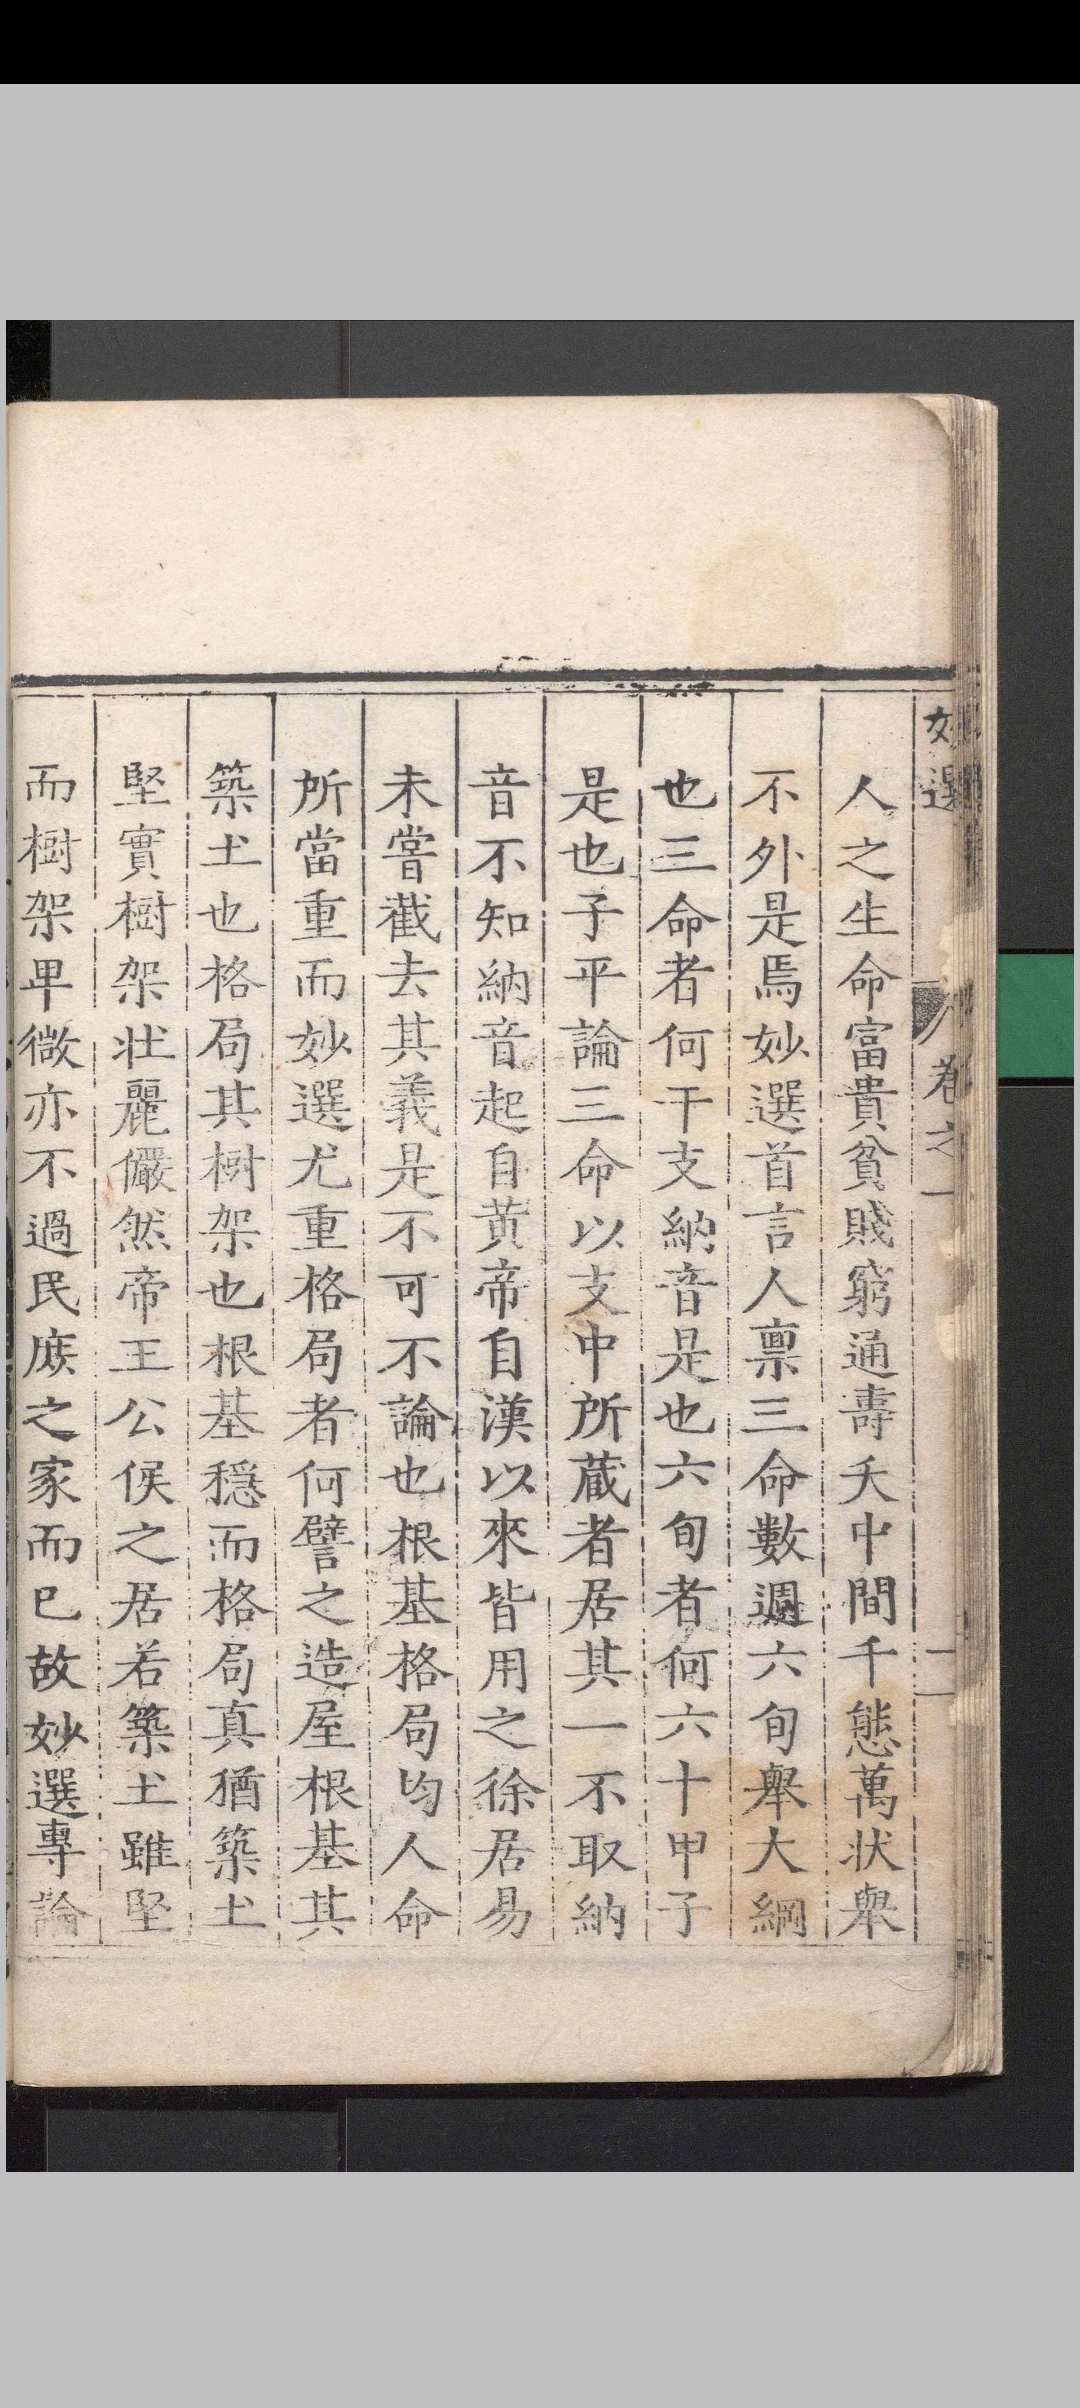 妙選 卷之一 二
人之生命富貴貧賤窮通壽夭中間千態萬状舉
不外是焉妙選首言人禀三命數週六旬舉大綱
也三命者何干支納音是也六旬者何六十甲子
是也子平論三命以支中所蔵者居其一不取納
音不知納音起自黄帝自漢以來皆用之徐居易
未嘗截去其義是不可不論也根基格局均人命
所當重而妙選尤重格局者何譬之造屋根基其
築土也格局其樹架也根基穩而格局真猶築土
堅實樹架壮麗儼然帝王公侯之居若築土雖堅
而樹架卑微亦不過民庶之家而已故妙選專論